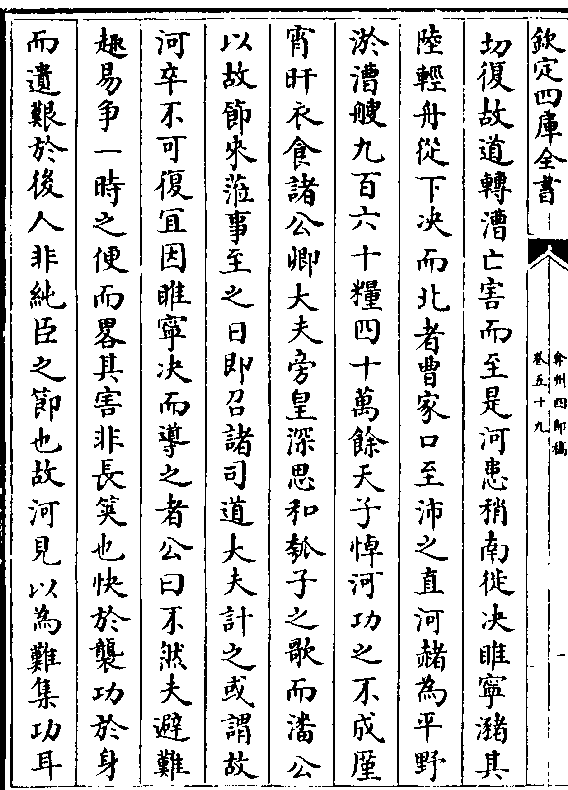 欽定四庫全書
弇州四部稿
卷五十九
切復故道轉漕亡害而至是河患稍南徙决睢寧瀦其
陸輕舟從下决而北者曹家口至沛之直河赭為平野
淤漕艘九百六十糧四十萬餘天子悼河功之不成厪
宵旰衣食諸公卿大夫旁皇深思和瓠子之歌而潘公
以故節來蒞事至之日即召諸司道大夫計之或謂故
河卒不可復宜因睢寧决而導之者公曰不然夫避難
趣易争一時之便而畧其害非長筴也快於襲功於身
而遺艱於後人非純臣之節也故河見以為難集功耳